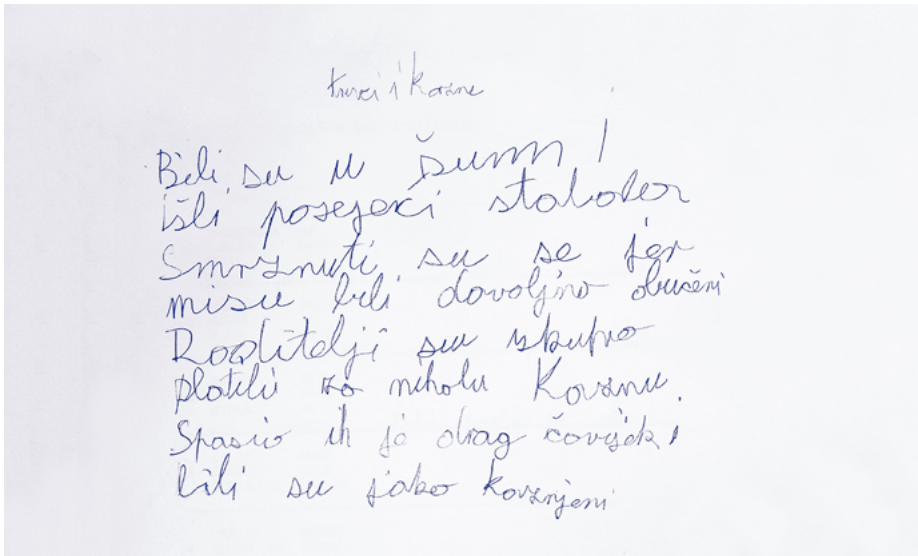 Bili su u šumi
išli posejeći stabolon
Smrznuti su se jer
nisu bili dovoljno obučeni
Roditelji su skupo
platili za niholu Kaznu.
Spasio ih je drag čovijek,
bili su jako kaznjeni